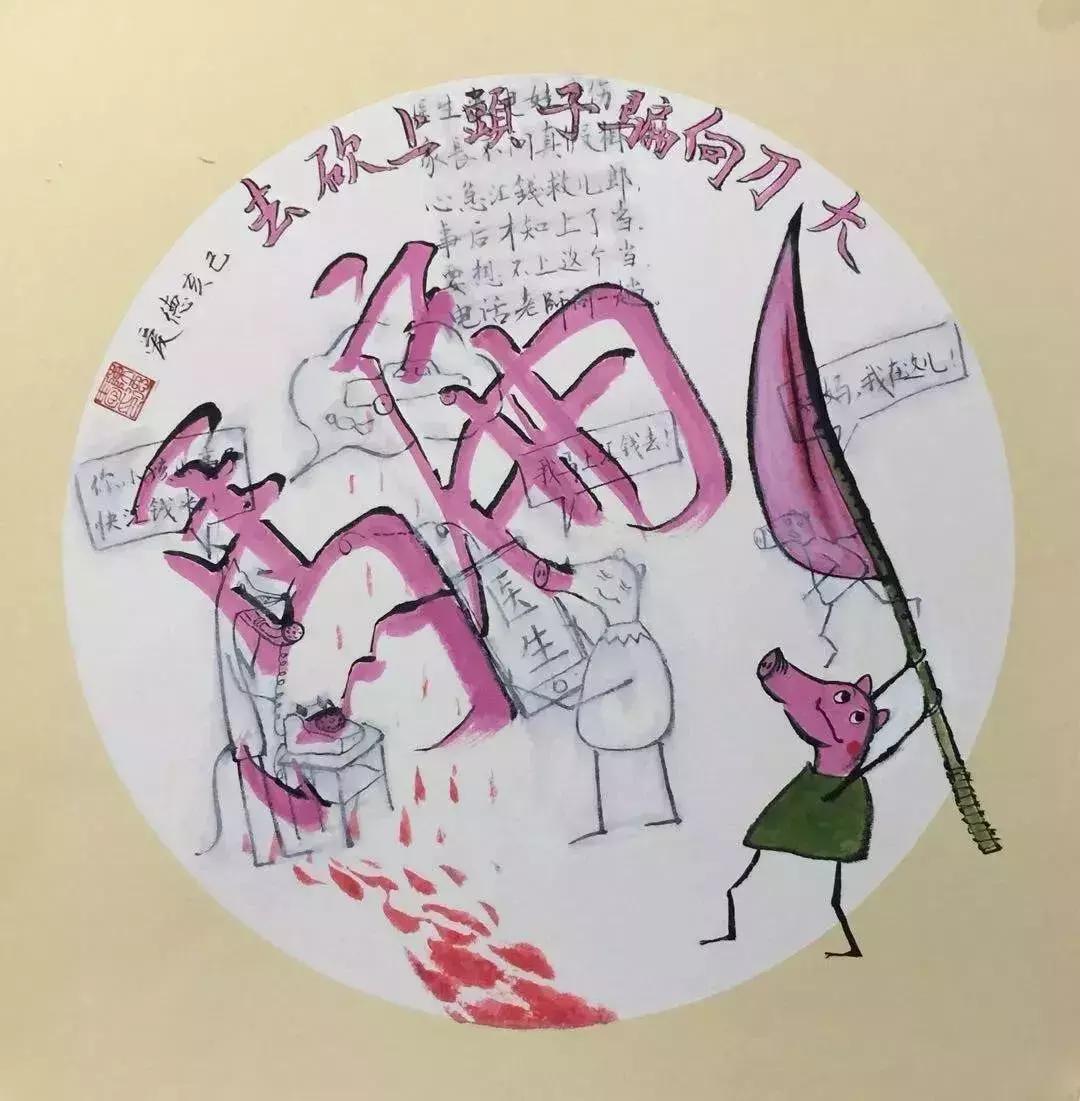 大刀向骗子頭上砍去
己亥德爱
医生
家长不问真
心急汇钱救儿郎,
事后才知上了当.
要想不上这个当.
电话老師问一
你小孩
快汇钱来!
我马上汇钱去!
妈,我在这儿!
医生